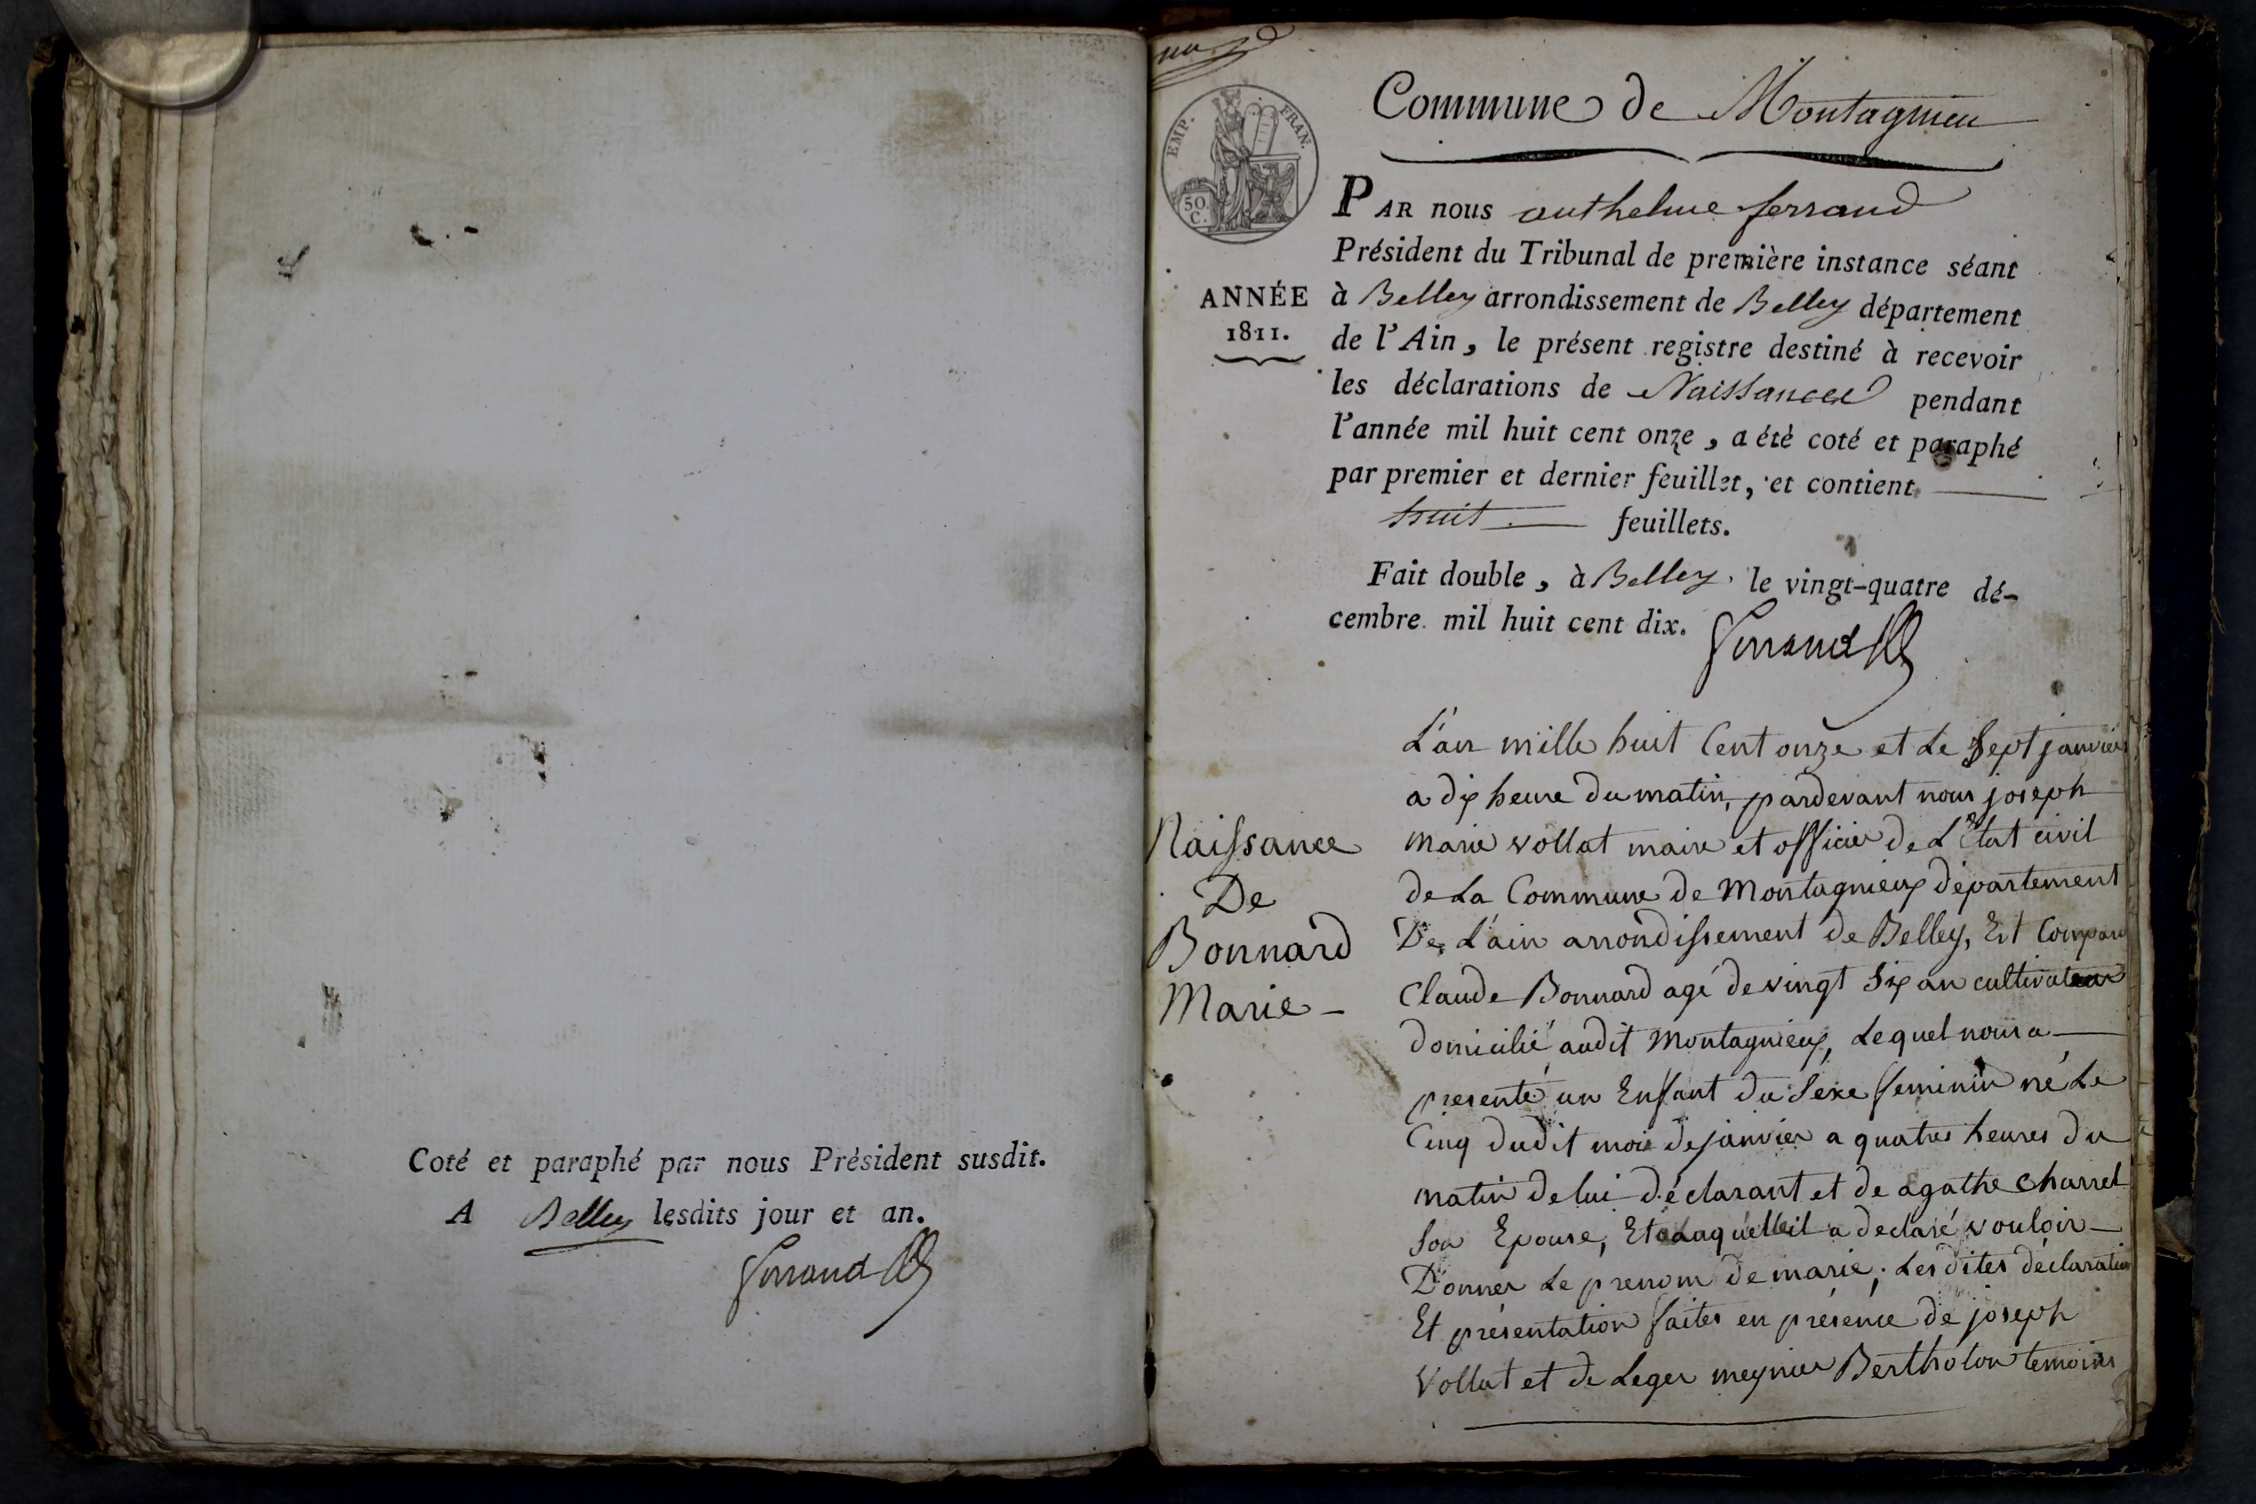 Coté et paraphé par nous Président susdit.
A Belley lesdits jour et an.
Ferrand
Commune de Montagnieu
EMP. FRAN.
50.
C.
PAR nous anthelme ferrand
Président du Tribunal de première instance séant
ANNÉE
1811.
à Belley arrondissement de Belley département
de l'Ain, le présent registre destiné à recevoir
les déclarations de Naissances pendant
l'année mil huit cent onze, a étè coté et paraphé
par premier et dernier feuillet, et contient
huit feuillets.
Fait double, à Belley le vingt-quatre dé-
cembre mil huit cent dix.
Ferrand
Naissance
De
Bonnard
Marie -
L'an mille huit Cent onze et Le Sept janvier
a dix heure du matin, pardevant nous joseph
marie vollat maire et officier de L'Etat civil
de La Commune de Montagnieux département
De L'ain arrondissement de Belley, Est Comparu
Claude Bonnard agé de vingt Six an cultivateur
domicilié audit Montagnieux, Lequel nous a
presenté un Enfant du Sexe feminin né Le
Cinq dudit mois de janvier a quatres heures du
matin de lui déclarant et de agathe Charrel
Son Epouse, Et a Laquelle il a declaré vouloir
Donner Le prenom de marie; Les dites déclaration
Et présentation faites en présence de joseph
Vollat et de Leger meynier Bertholon temoins